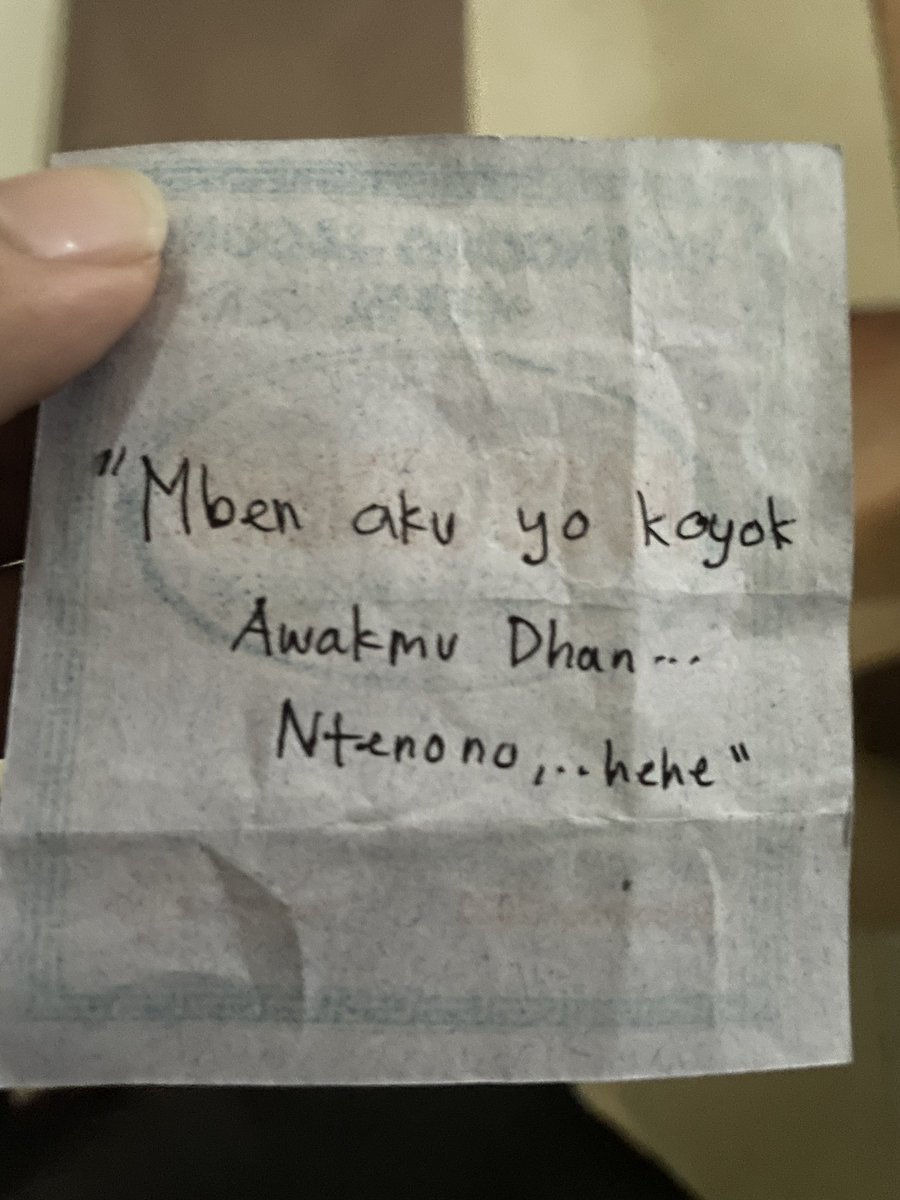 "Mben aku yo koyok
Awakmu Dhan...
Ntenono,...hehe"